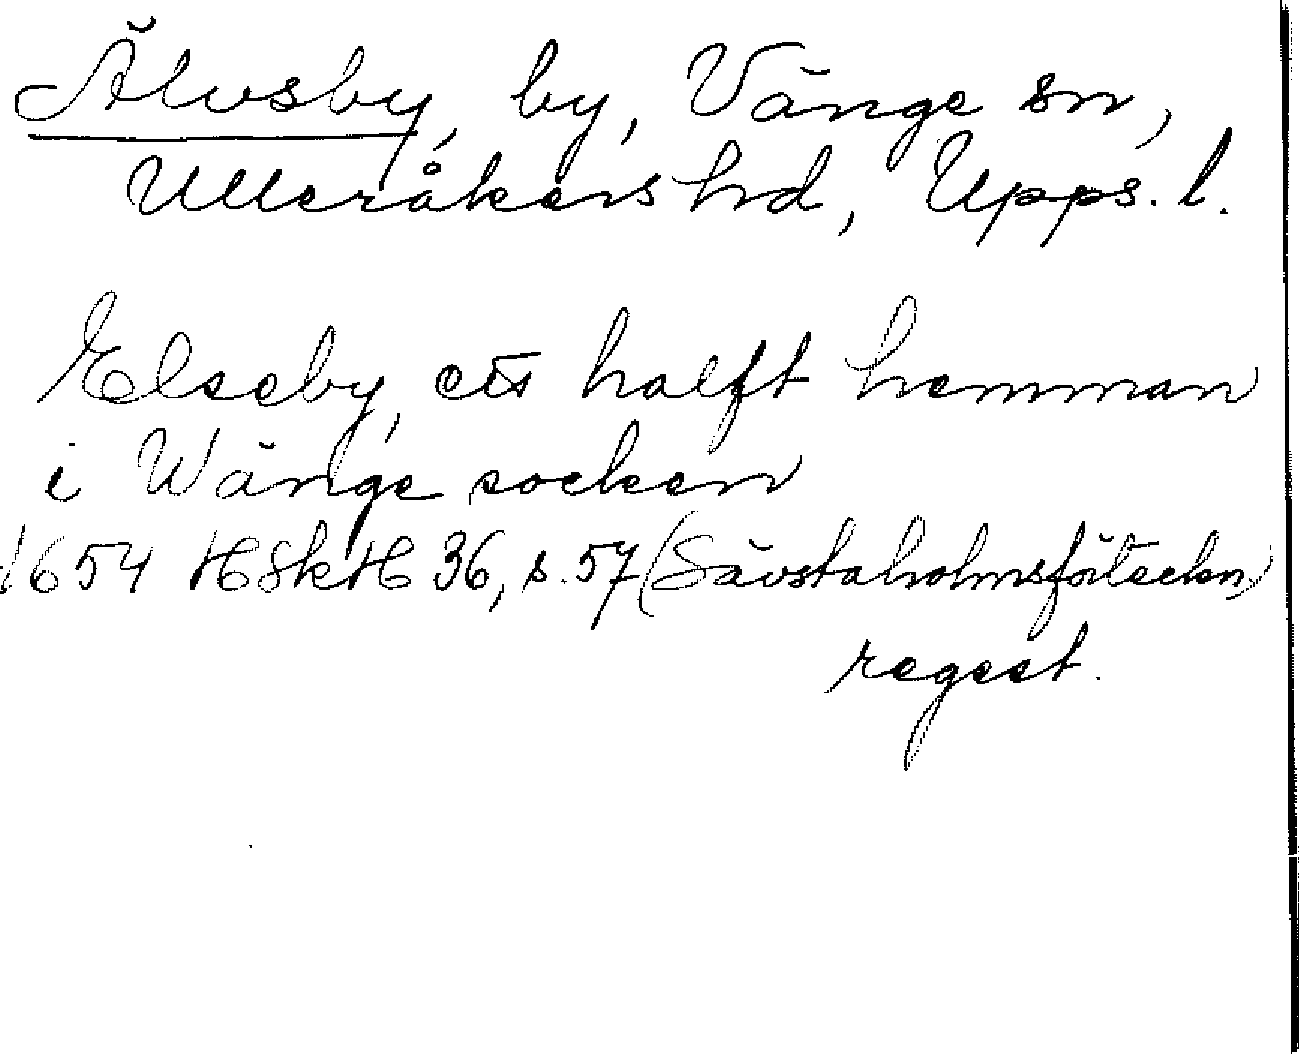 Älvsby, by, Vänge sn,
Ulleråkers hd, Upps. l.
Elseby, ett halft hemman
i Wänge socken
1654 HSkH 36, s. 57 (Sävstaholmsförteckn)
regest.